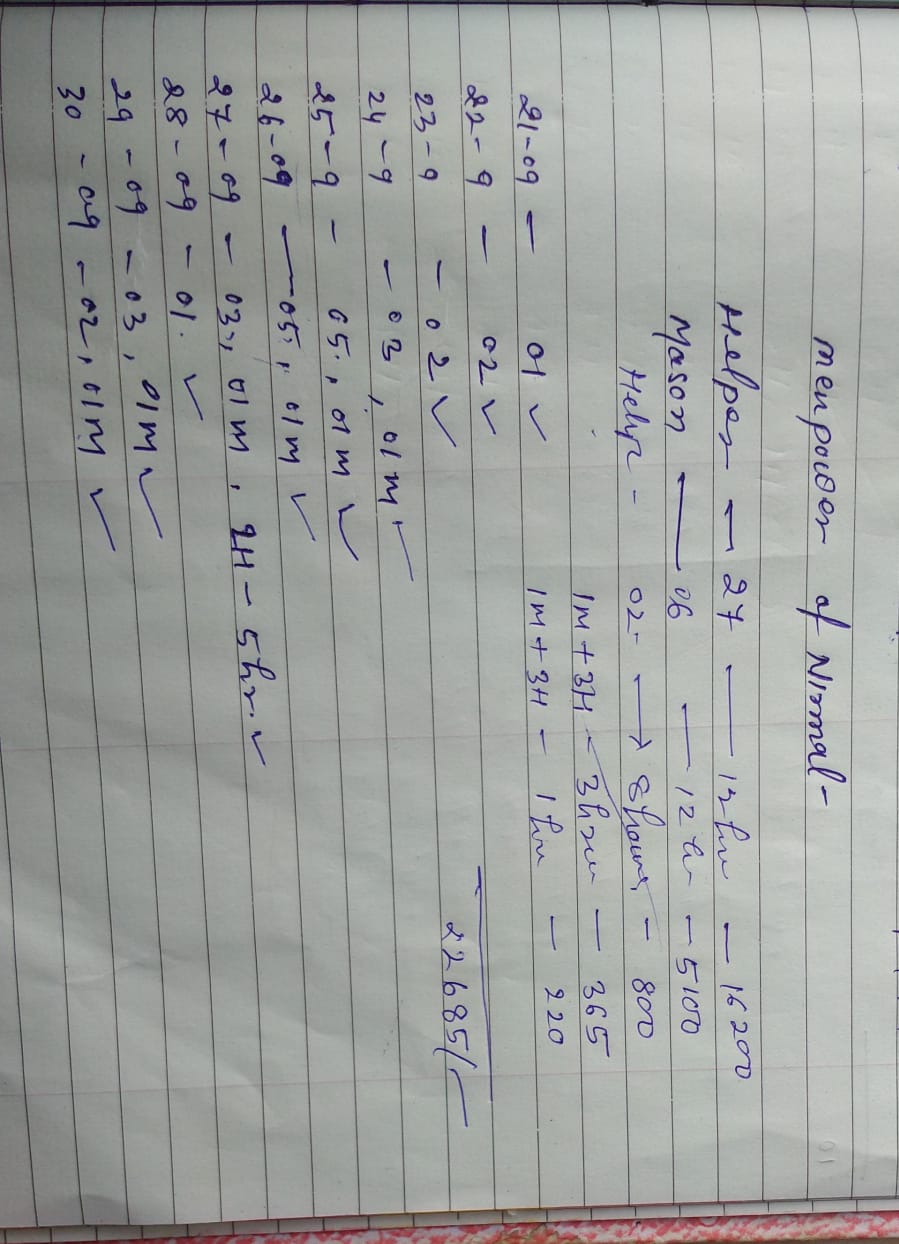 menpower of Nirmal -
Helper - 27 — 12hr — 16200
Mason — 06 — 12 hr - 5100
Helpr - 02 - → 8 hours - 800
1M + 3H - 3 hr — 365
1M + 3H - 1 hr — 220
22685/-
21-09 - 01 ✓
22-9 - 02 ✓
23-9 - 02 ✓
24-9 - 03, 01 M ✓
25-9 - 05, 01 M ✓
26-09 — 05, 01 M ✓
27-09 - 03, 01 M, 2H - 5 hr. ✓
28-09 - 01. ✓
29-09 - 03, 01 M ✓
30-09 - 02, 01 M ✓